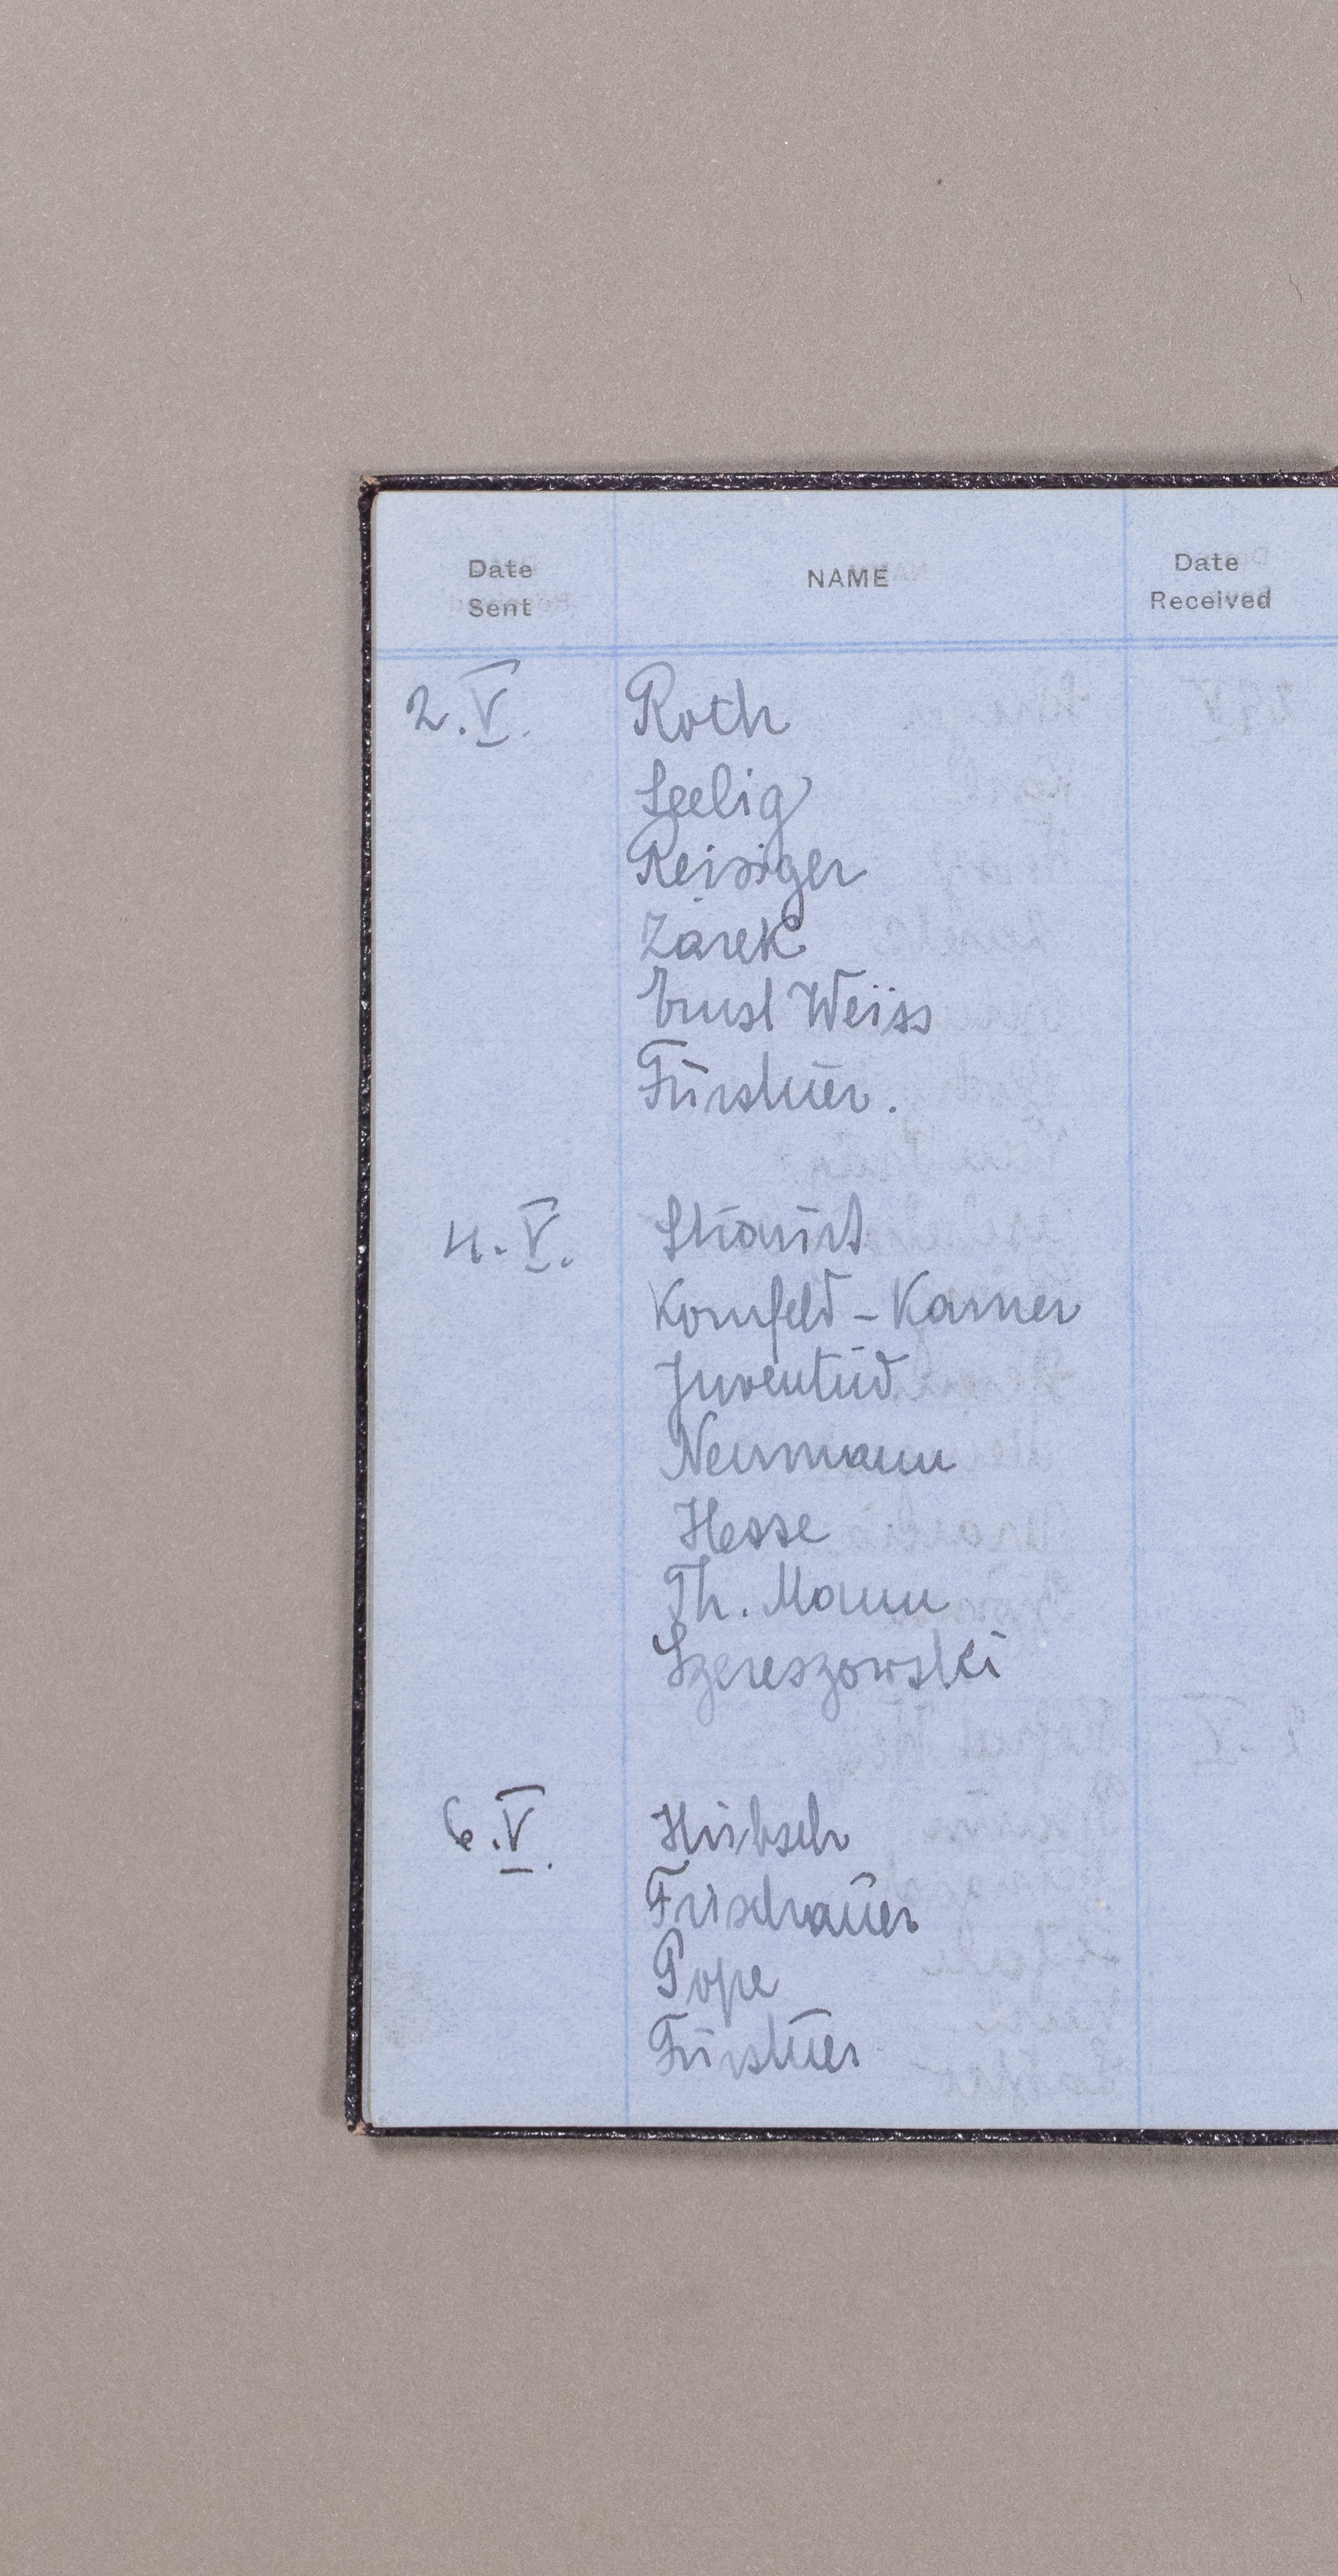 Date Sent NAME Date Received
2.V. Roth
Seelig
Reisiger
Zarek
Ernst Weiss
Fürstner.
4.V.
Kornfeld-Karner
Juventud
Neumann
Hesse
Th. Mann
Szereszowski
6.V. Hübsch
Frischauer
Pope
Fürstner